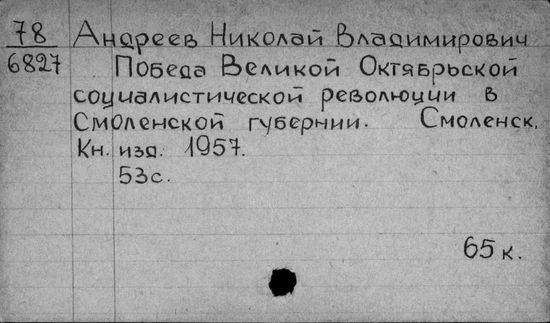 78 Андреев Николай Владимирович
6827 Победа Великой Октябрьской
социалистической революции в
Смоленской губернии. Смоленск,
Кн. изд. 1957.
53с.
65 к.